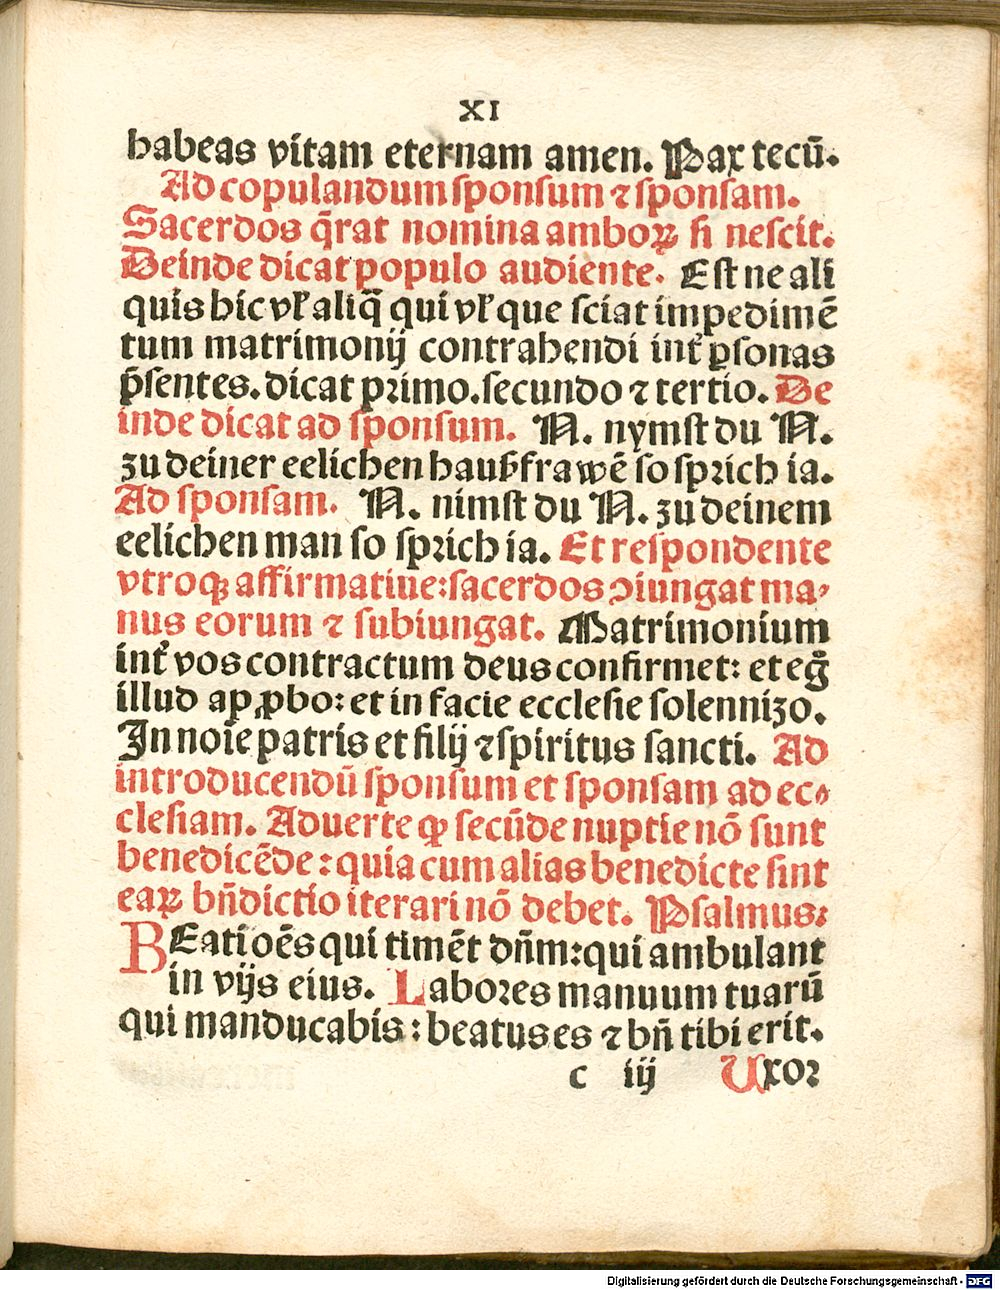 XI
habeas vitam eternam amen. Pax tecū.
Ad copulandum sponsum ⁊ sponsam.
Sacerdos q̄rat nomina amboꝝ si nescit.
Deinde dicat populo audiente. Est ne ali
quis hic vĺ aliq̄ qui vĺ que sciat impedimē
tum matrimonij contrahendi int͛ ꝑsonas
p̄sentes. dicat primo. secundo ⁊ tertio. De
inde dicat ad sponsum. N. nymst du N.
zu deiner eelichen haußfrawē so sprich ia.
Ad sponsam. N. nimst du N. zu deinem
eelichen man so sprich ia. Et respondente
vtroqꝫ affirmatiue: sacerdos ↄiungat ma⸗
nus eorum ⁊ subiungat. Matrimonium
int͛ vos contractum deus confirmet: et eḡ
illud ap ꝓbo: et in facie ecclesie solennizo.
In noīe patris et filij ⁊ spiritus sancti. Ad
introducendū sponsum et sponsam ad ec⸗
clesiam. Aduerte ꝙ secūde nuptie nō sunt
benedicēde: quia cum alias benedicte sint
eaꝝ bn̄dictio iterari nō debet. Psalmus:
BEati oēs qui timēt dn̄m: qui ambulant
in vijs eius. Labores manuum tuarū
qui manducabis: beatus es ⁊ bn̄ tibi erit.
c iij Uxor
Digitalisierung gefördert durch die Deutsche Forschungsgemeinschaft - DFG